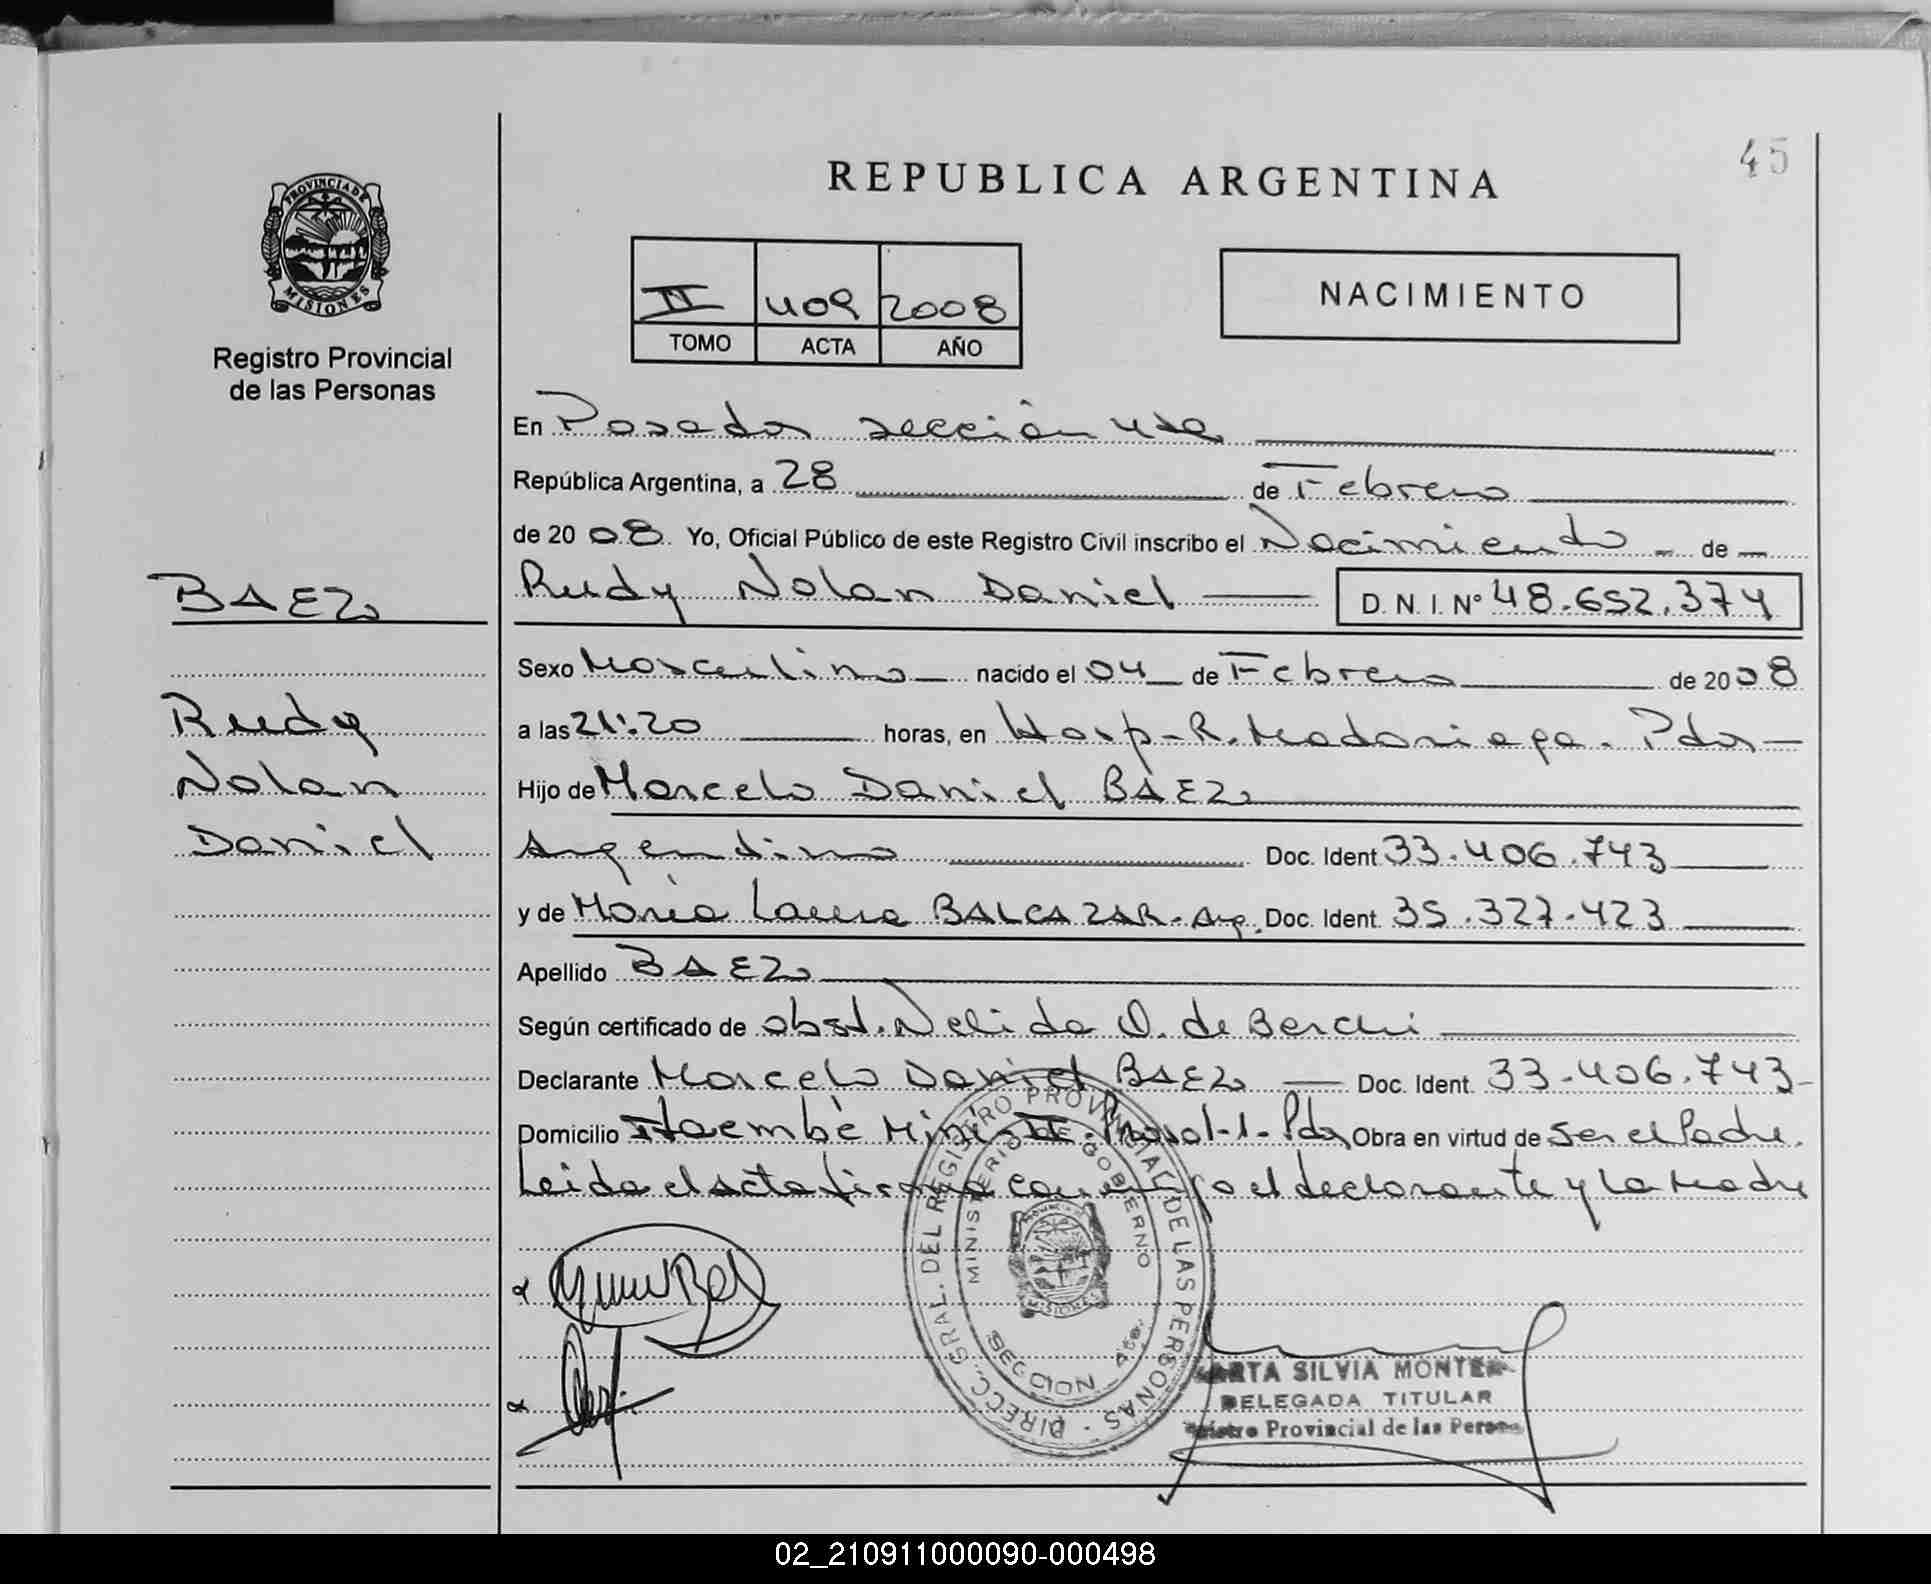 45
REPUBLICA ARGENTINA
PROVINCIA DE
MISIONES
Registro Provincial
de las Personas
II 409 2008
TOMO ACTA AÑO
NACIMIENTO
En Posadas sección 4ta
República Argentina, a 28 de Febrero
de 2008 Yo, Oficial Público de este Registro Civil inscribo el Nacimiento de
BAEZ
Rudy Nolan Daniel D. N. I. Nº 48.652.374
Sexo Masculino nacido el 04 de Febrero de 2008
Rudy
a las 21:20 horas, en Hosp. R. Madariaga. Pdas
Nolan
Hijo de Marcelo Daniel BAEZ
Daniel
Argentino Doc. Ident 33.406.743
y de María Laura BALCAZAR. Arg. Doc. Ident. 35.327.423
Apellido BAEZ
Según certificado de obst. Nelida O. de Berchi
Declarante Marcelo Daniel BAEZ Doc. Ident. 33.406.743
Domicilio Itaembé Mini II Pdas Obra en virtud de ser el Padre.
Leida el acta firma conmigo el declarante y la Madre
DIRECC. GRAL. DEL REGISTRO PROVINCIAL DE LAS PERSONAS
MINISTERIO DE GOBIERNO
MISIONES
SECCION 4ta.
MARTA SILVIA
DELEGADA TITULAR
Provincial de las
02_210911000090-000498